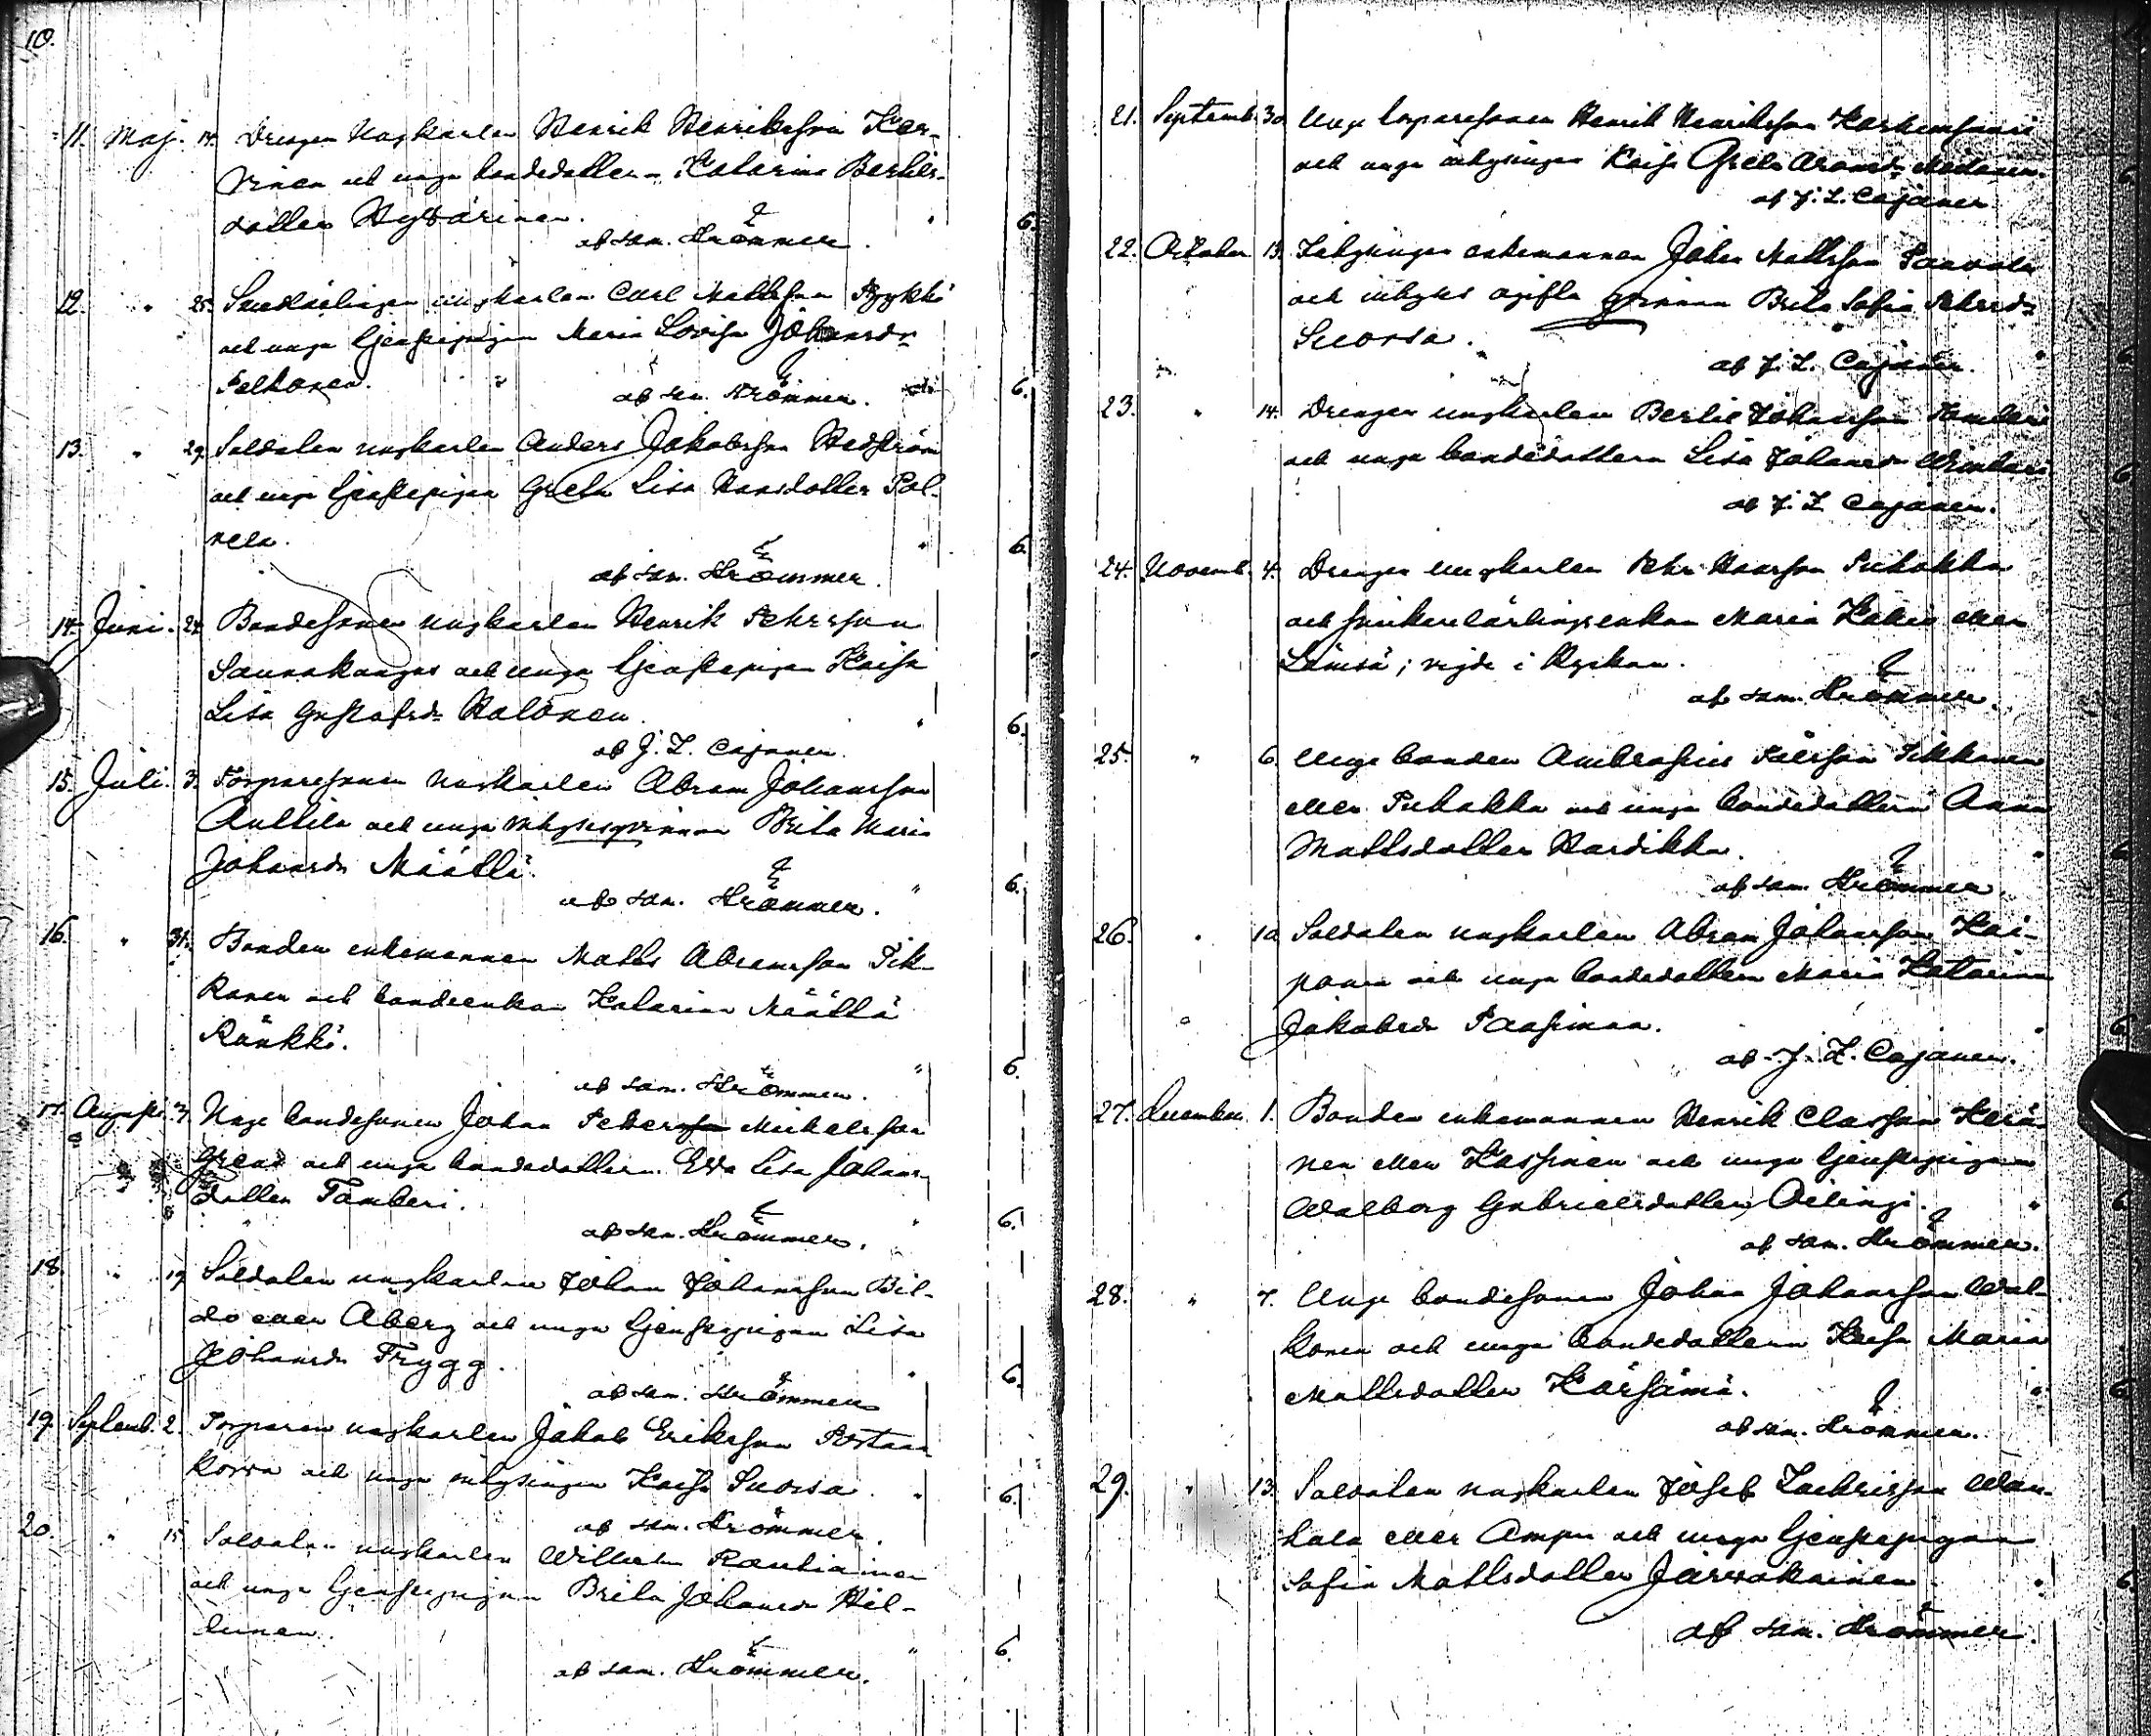 10.
11. Maj. 14. Drengen Ungkarlen Henrik Henriksson Kar-
vinen och unga bondedottern Katarina Bertils-
dotter Hyvärinen.
af sam. Krömmer. 6.
12. " 25. ungkarlen Carl Mattsson Pyykkö
och unga tjenstepigan Maria Lovisa Johansdr
Peltonen.
af sam. Krömmer. 6.
13. " 29. Soldaten ungkarlen Anders Jakobsson Hedström
och unga tjenstepigan Greta Lisa Hansdotter Pol-
vela.
af sam. Krömmer. " 6.
14. Juni. 24. Bondesonen ungkarlen Henrik Pehrsson
Saunakangas och unga tjenstepigan Kaisa
Lisa Gustafsdr Halonen.
af J. L. Cajaner. " 6.
15. Juli. 3. Torparesonen ungkarlen Abram Johansson
Anttila och unga inhysesqvinnan Brita Maria
Johansdr Määttä.
af sam. Krömmer. " 6.
16. " 31. Bonden enkemannen Matts Abramsson Tik-
kanen och bondeenkan Katarina Määttä
Ränkki.
af sam. Krömmer. " 6.
17. Augusti. 3. Unge bondesonen Johan Petter Mickelsson
och unga bondedottern Eva Lisa Johans-
dotter Tamberi.
af sam. Krömmer. " 6.
18. " 19. Soldaten ungkarlen Johan Johansson Bil-
do eller Åberg och unga tjenstepigan Lisa
Johansdr Trygg.
af sam. Krömmer. " 6.
19. Septemb. 2. Torparen ungkarlen Jakob Eriksson
korva och unga inhysingen Kaisa Suorsa. " 6.
af sam. Krömmer.
20. " 15. Soldaten ungkarlen Wilhelm Rautiainen
och unga tjenstepigan Brita Johansdr Hil-
tunen.
af sam. Krömmer. " 6.
21. Septemb. 30. Unge torparesonen Henrik Henriksson
och unga inhysingen Kaisa Greta
af J. L. Cajaner. 6.
22. October. 13. Inhysingen enkemannen Johan Mattsson Paavola
och inhyses ogifta qvinnan Brita Sofia Pehrsdr
Suorsa.
af J. L. Cajaner. " 6.
23. " 14. Drengen ungkarlen Bertil Johansson Tamberi
och unga bondedottern Lisa Johansdr
af J. L. Cajaner. 6.
24. Novemb. 4. Drengen ungkarlen Pehr Hansson Puhakka
och enkan Maria eller
Lämsä; vigde i Kyrkan.
af sam. Krömmer.
25. " 6. Unge bonden Ambrosius Pålsson Tikkanen
eller Puhakka och unga bondedottern Anna
Mattsdotter Hardikka.
af sam. Krömmer. " 6.
26. " 10. Soldaten ungkarlen Abram Johansson Kai-
och unga bondedottern Maria Katarina
Jakobsdr Paasimaa.
af J. L. Cajaner. " 6.
27. December. 1. Bonden enkemannen Henrik Classon Kerä-
nen eller Kassinen och unga tjenstepigan
Walborg Gabrielsdotter Oilingi. " 6.
af sam. Krömmer.
28. " 7. Unge bondesonen Johan Johansson Wal-
konen och unga bondedottern Kaisa Maria
Mattsdotter Kärsämä. " 6.
af sam. Krömmer.
29. " 13. Soldaten ungkarlen Josef Zachrisson Wan-
hala eller och unga tjenstepigan
Sofia Mattsdotter Järvakainen. " 6.
af sam. Krömmer.